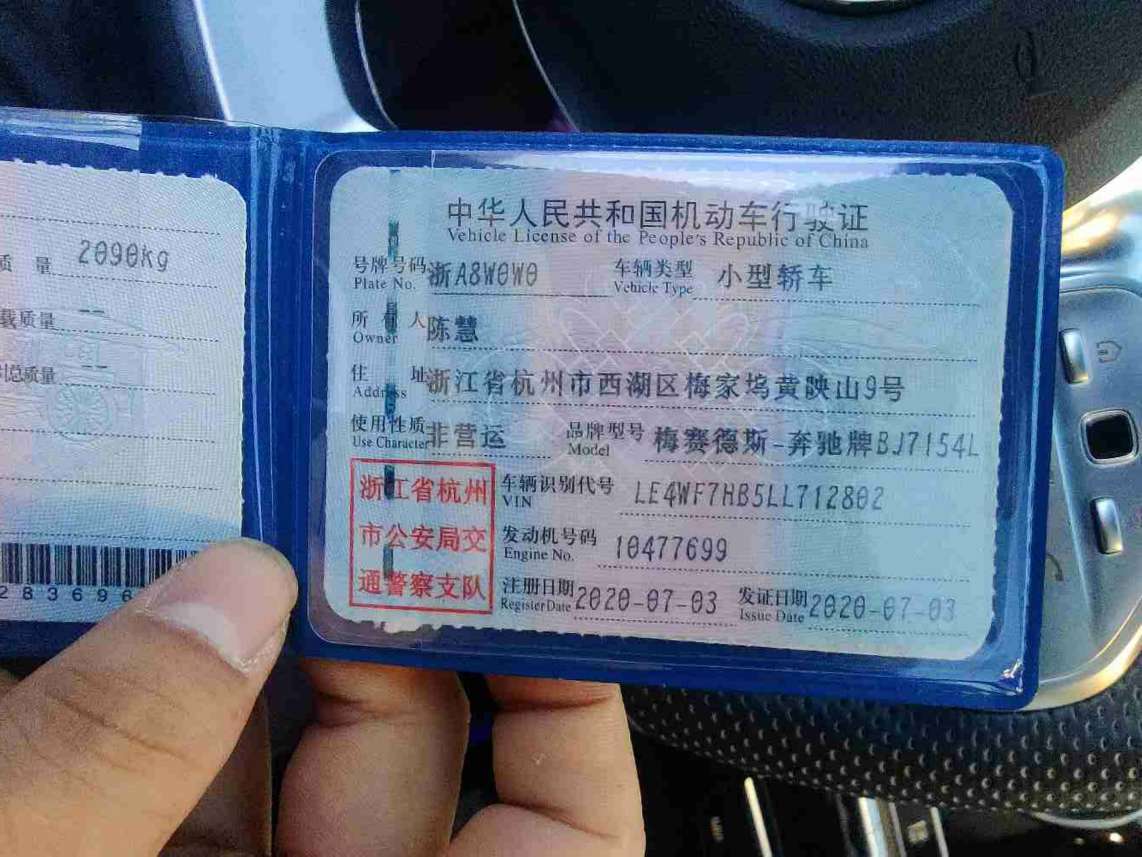 质 量 2090kg
载质量 --
总质量 --
中华人民共和国机动车行驶证
Vehicle License of the People's Republic of China
号牌号码 浙A8W0W0 车辆类型 小型轿车
Plate No. Vehicle Type
所 有 人 陈慧
Owner
住 址 浙江省杭州市西湖区梅家坞黄映山9号
Address
使用性质 非营运 品牌型号 梅赛德斯-奔驰牌BJ7154L
Use Character Model
浙江省杭州
市公安局交
通警察支队
车辆识别代号 LE4WF7HB5LL712802
VIN
发动机号码 10477699
Engine No.
注册日期 2020-07-03 发证日期 2020-07-03
Register Date Issue Date
283696